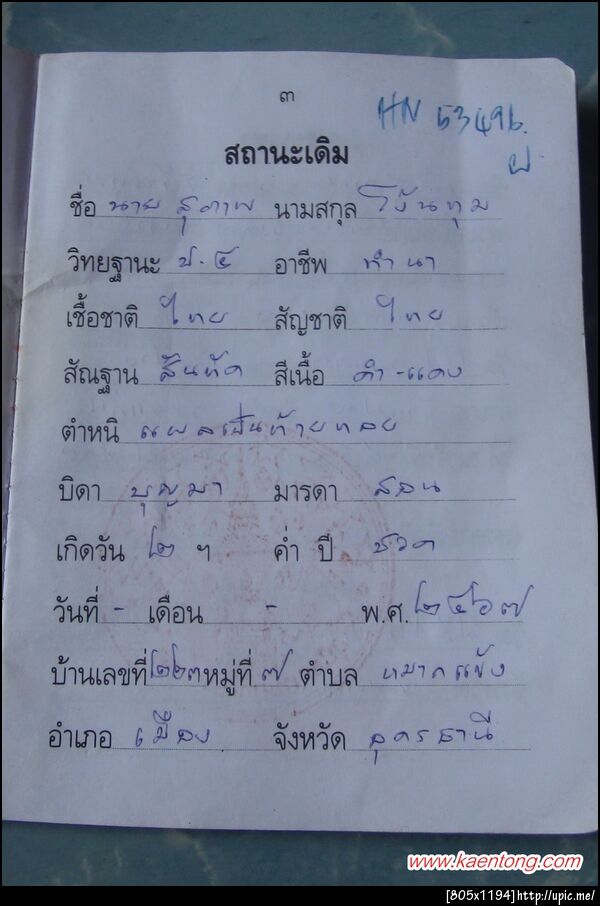 ๓
HN 53496.
ป
สถานะเดิม
ชื่อ นาย สุภาพ นามสกุล
วิทยฐานะ ป.๔ อาชีพ ทำนา
เชื้อชาติ ไทย สัญชาติ ไทย
สัณฐาน สันทัด สีเนื้อ ดำ-แดง
ตำหนิ แผลเป็นท้ายทอย
บิดา บุญมา มารดา สอน
เกิดวัน ๒ ฯ ค่ำ ปี ชวด
วันที่ - เดือน - พ.ศ. ๒๔๖๗
บ้านเลขที่ ๒๒๓ หมู่ที่ ๗ ตำบล หมากแข้ง
อำเภอ เมือง จังหวัด อุดรธานี
www.kaentong.com
[805x1194]http://upic.me/